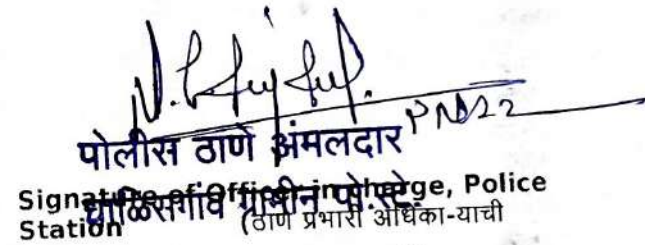 पोलीस ठाणे अंमलदार
चाळिसगांव ग्रामीण पो.स्टे.
Signature of Officer in charge, Police
Station (ठाणे प्रभारी अधिका-याची